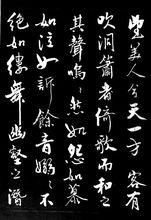 望美人兮天一方客有
吹洞簫者倚歌而和之
其聲嗚嗚然如怨如慕
如泣如訴餘音嫋嫋不
絕如縷舞幽壑之潛